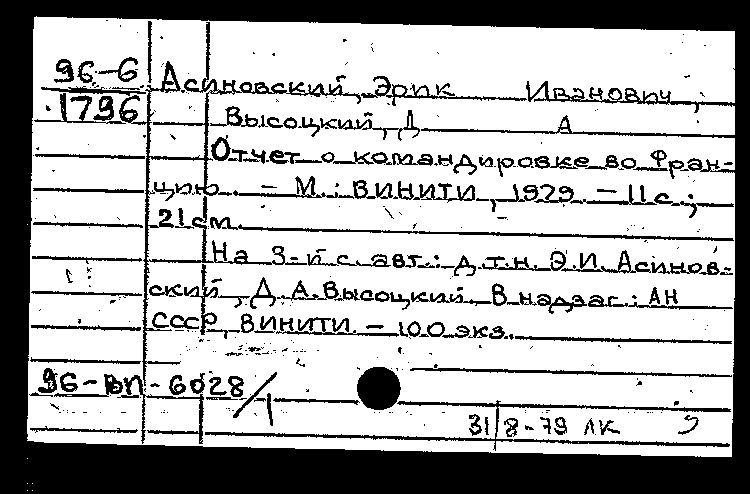 96-6 Асиновский, Эрик Иванович;
1796 Высоцкий, Д А
Отчет о командировке во Фран-
цию. - М.: ВИНИТИ, 1979. - 11 с.;
21 см.
На 3-й с. авт.: д.т.н. Э.И. Асинов-
ский, Д.А. Высоцкий. В надзаг.: АН
СССР, ВИНИТИ. - 100 экз.
96-ВП-6028/1
31/8-79 ЛК